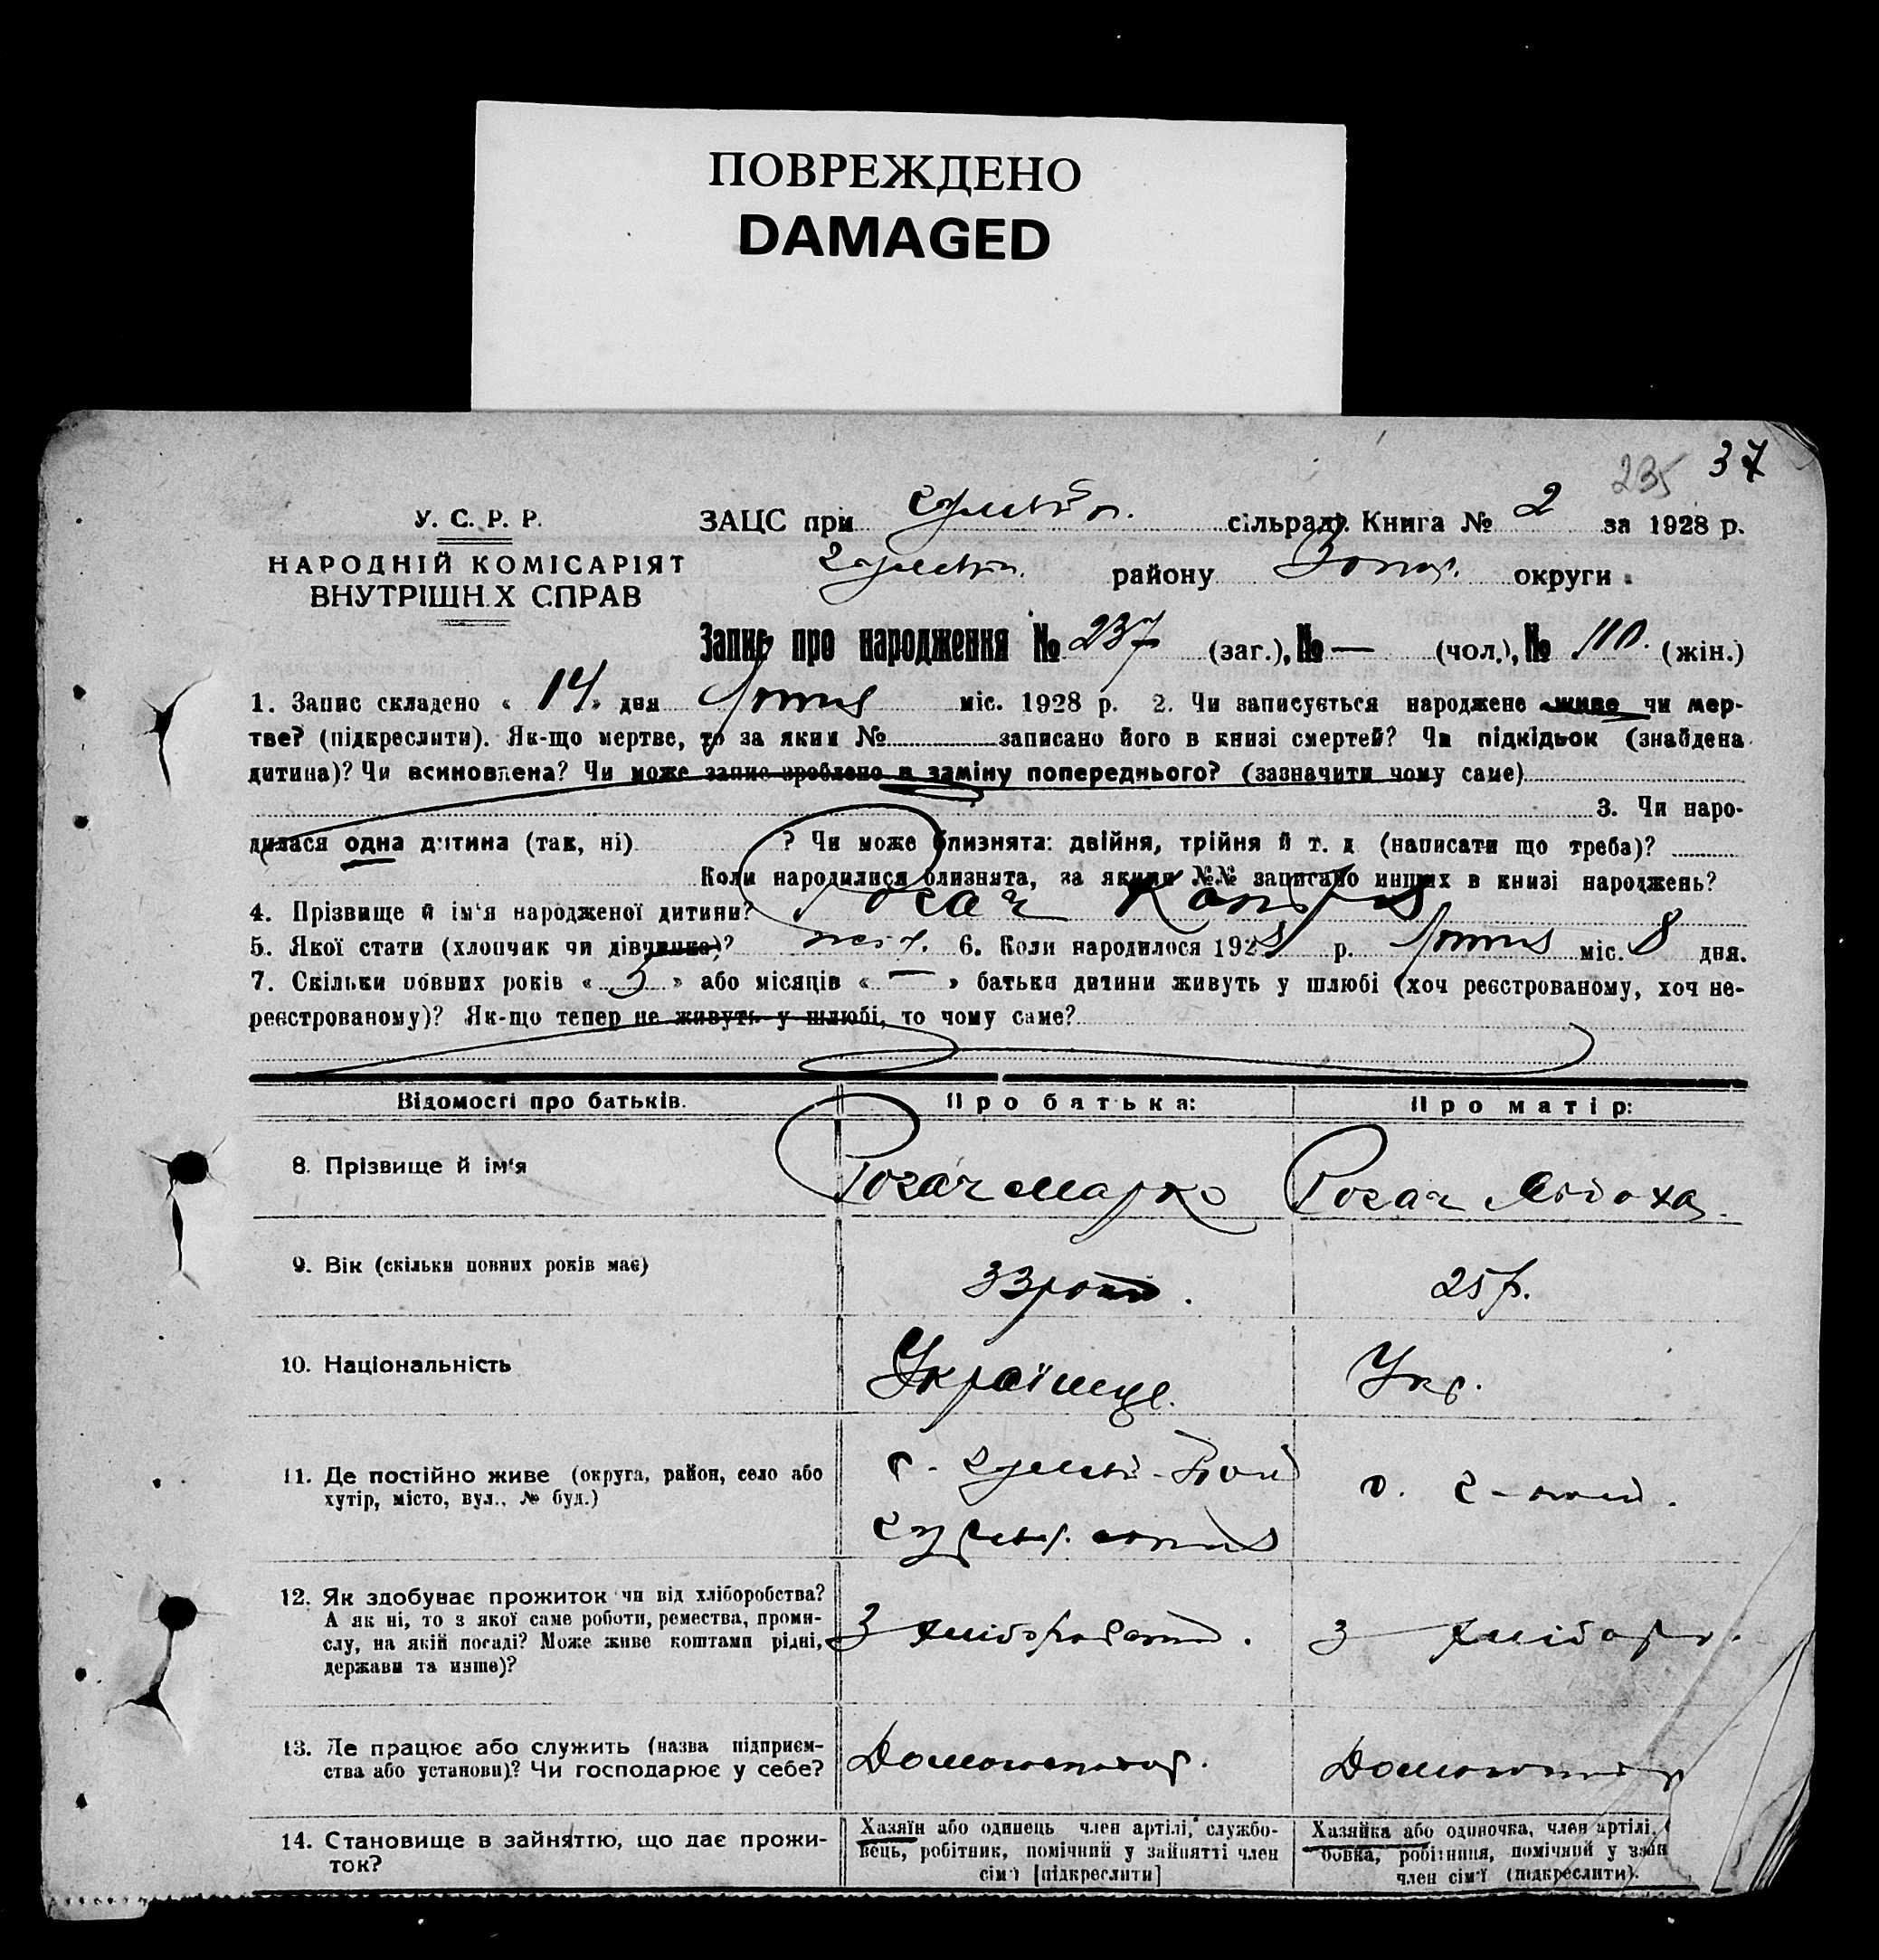 ПОВРЕЖДЕНО
DAMAGED
235 37
У. С. Р. Р.
НАРОДНІЙ КОМІСАРІЯТ
ВНУТРІШН.Х СПРАВ
ЗАЦС при сільраді. Книга № 2 за 1928 р.
району округи
Запис про народження № 237 (заг.), № — (чол.), № 110. (жін.)
1. Запис складено « 14 » дня міс. 1928 р. 2. Чи записується народжене живе чи мер-
тве? (підкреслити). Як-що мертве, то за яким № записано його в книзі смертей? Чи підкідьок (знайдена
дитина)? Чи всиновлена? Чи може запис зроблено в заміну попереднього? (зазначити чому саме)
3. Чи наро-
дилася одна дитина (так, ні) ? Чи може близнята: двійня, трійня й т. д (написати що треба)?
Коли народилися близнята, за якими №№ записано инших в книзі народжень?
4. Прізвище й ім'я народженої дитини? Рогач
5. Якої стати (хлопчик чи дівчинка)? 6. Коли народилося 1928 р. міс. 8 дня.
7. Скільки повних років « 5 » або місяців « — » батьки дитини живуть у шлюбі (хоч реєстрованому, хоч не-
реєстрованому)? Як-що тепер не живуть у шлюбі, то чому саме?
Відомості про батьків. Про батька: Про матір:
8. Прізвище й ім'я Рогач Марко Рогач
9. Вік (скільки повних років має) 33 роки. 25 р.
10. Національність Українце. Укр.
11. Де постійно живе (округа, район, село або
хутір, місто, вул., № буд.)
12. Як здобуває прожиток чи від хліборобства?
А як ні, то з якої саме роботи, ремества, проми-
слу, на якій посаді? Може живе коштами рідні,
держави та инше)?
З хліборобства. З хлібороб.
13. Де працює або служить (назва підприєм-
ства або установи)? Чи господарює у себе?
Домогосподар. Домогосподар
14. Становище в зайняттю, що дає прожи-
ток?
Хазяїн або одинець член артілі, службо-
вець, робітник, помічний у зайнятті член
сім'ї [підкреслити]
Хазяйка або одиночка, член артілі,
бовка, робітниця, помічний у зайн
член сім'ї (підкреслити).